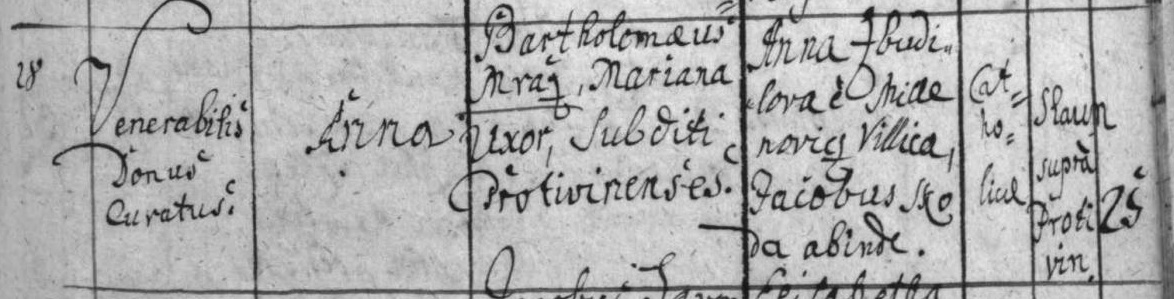 18
Venerabilis
Donus
Curatus.
Anna
Bartholomæus
Mraz, Mariana
Uxor, Subditi
Protivinenses.
Anna Zbudi„
lova è
Villica,
Jacobus Sko
da abinde.
Cat=
ho=
licæ
supra
Proti
vin.
25